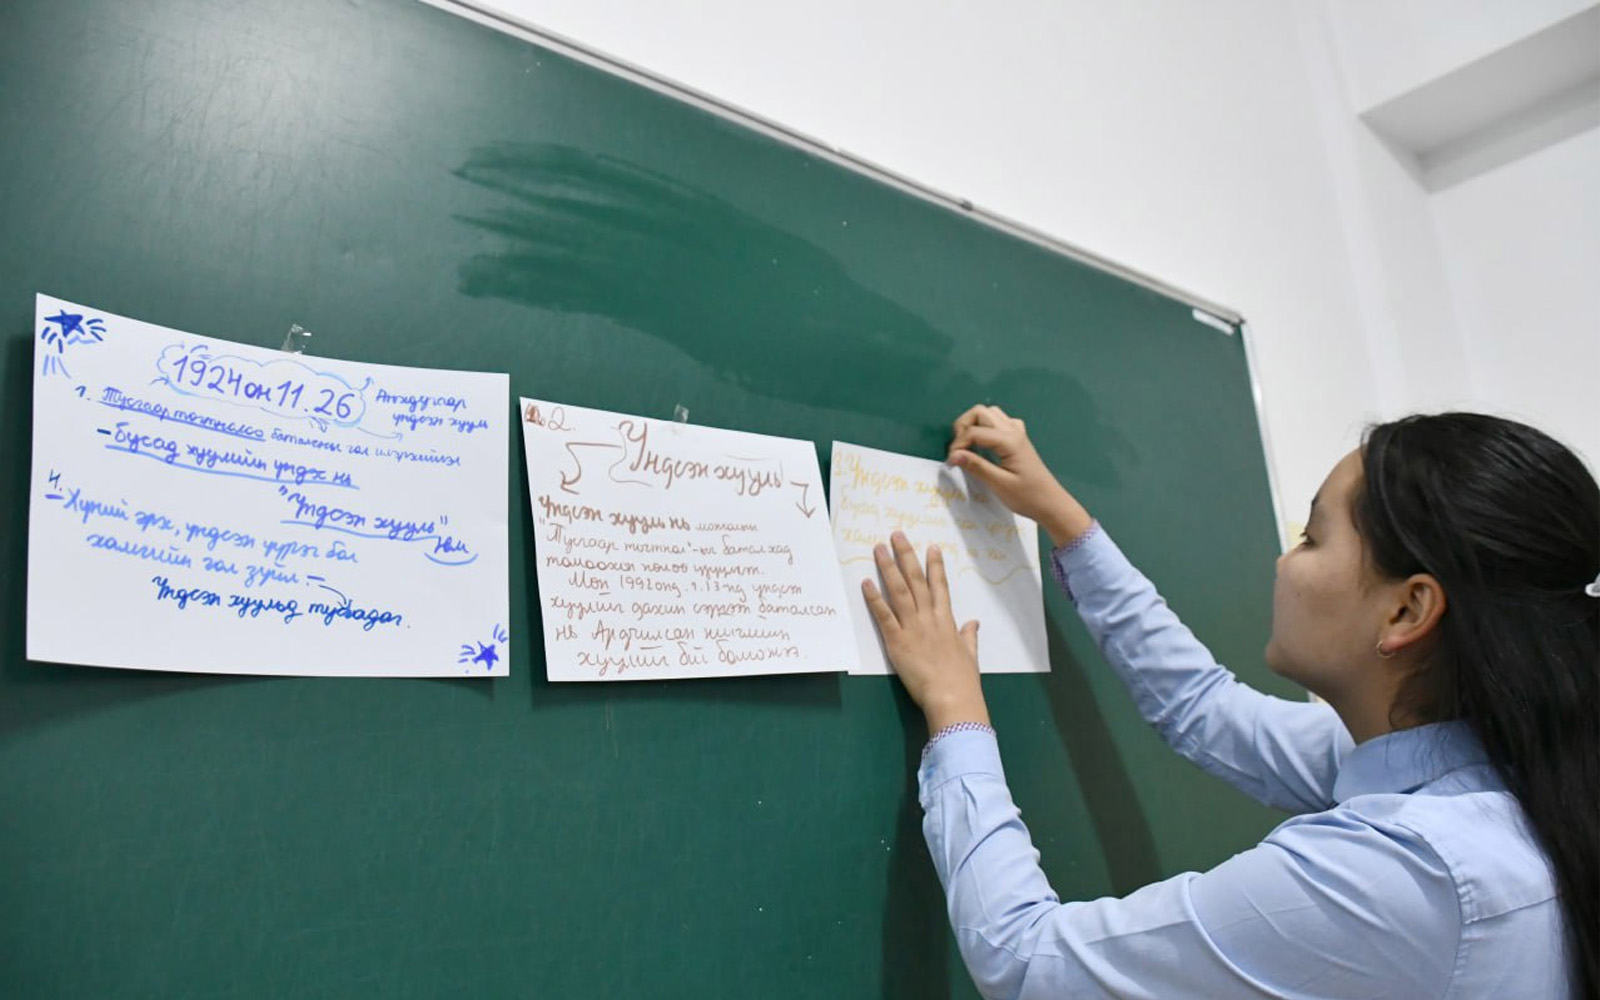 1924 он 11.26
Анхдугаар
үндсэн хууль
1. Тусгаар тогтнолоо баталсны гол илэрхийлэл
- бусад хуулийн үндэх нь
"Үндсэн хууль"
юм
4. Хүний эрх, үндсэн үүрэг бол
хамгийн гол зүйл :-
Үндсэн хуульд тусгадаг.
2.
Үндсэн хууль
Үндсэн хууль нь монголын
"Тусгаар тогтнол"-ыг батлахад
томоохон нөлөө үзүүлэв.
Мөн 1992 онд 1.13-нд үндсэн
хуулийг дахин сэргээн баталсан
нь Ардчилсан нийгмийн
хуулийг бий болгожээ.
3. Үндсэн хууль нь
бусад хуулийн